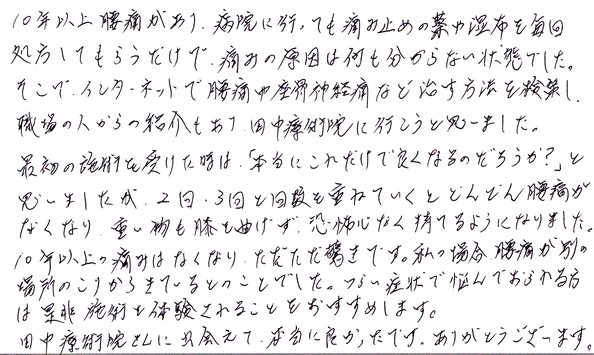 10年以上腰痛があり、病院に行っても痛み止めの薬や湿布を毎回
処方してもらうだけで、痛みの原因は何も分からない状態でした。
そこで、インターネットで腰痛や座骨神経痛など治す方法を検索し、
職場の人からの紹介もあり、田中療術院に行こうと思いました。
最初の施術を受けた時は、「本当にこれだけで良くなるのだろうか?」と
思いましたが、2回、3回と回数を重ねていくとどんどん腰痛が
なくなり、重い物も膝を曲げず、恐怖心なく持てるようになりました。
10年以上の痛みはなくなり、ただただ驚きです。私の場合、腰痛が別の
場所のこりからきているとのことでした。つらい症状で悩んでおられる方
は是非施術を体験されることをおすすめします。
田中療術院さんに出会えて、本当に良かったです。ありがとうございます。